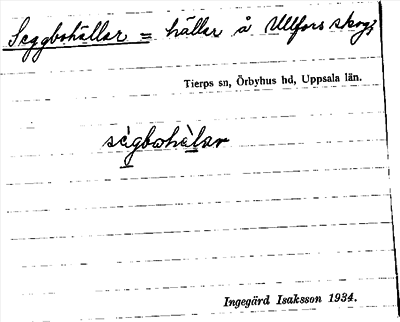 Seggbohällar = hällar å Ullfors skog,
Tierps sn, Örbyhus hd, Uppsala län.
sègbohèlar
Ingegärd Isaksson 1934.